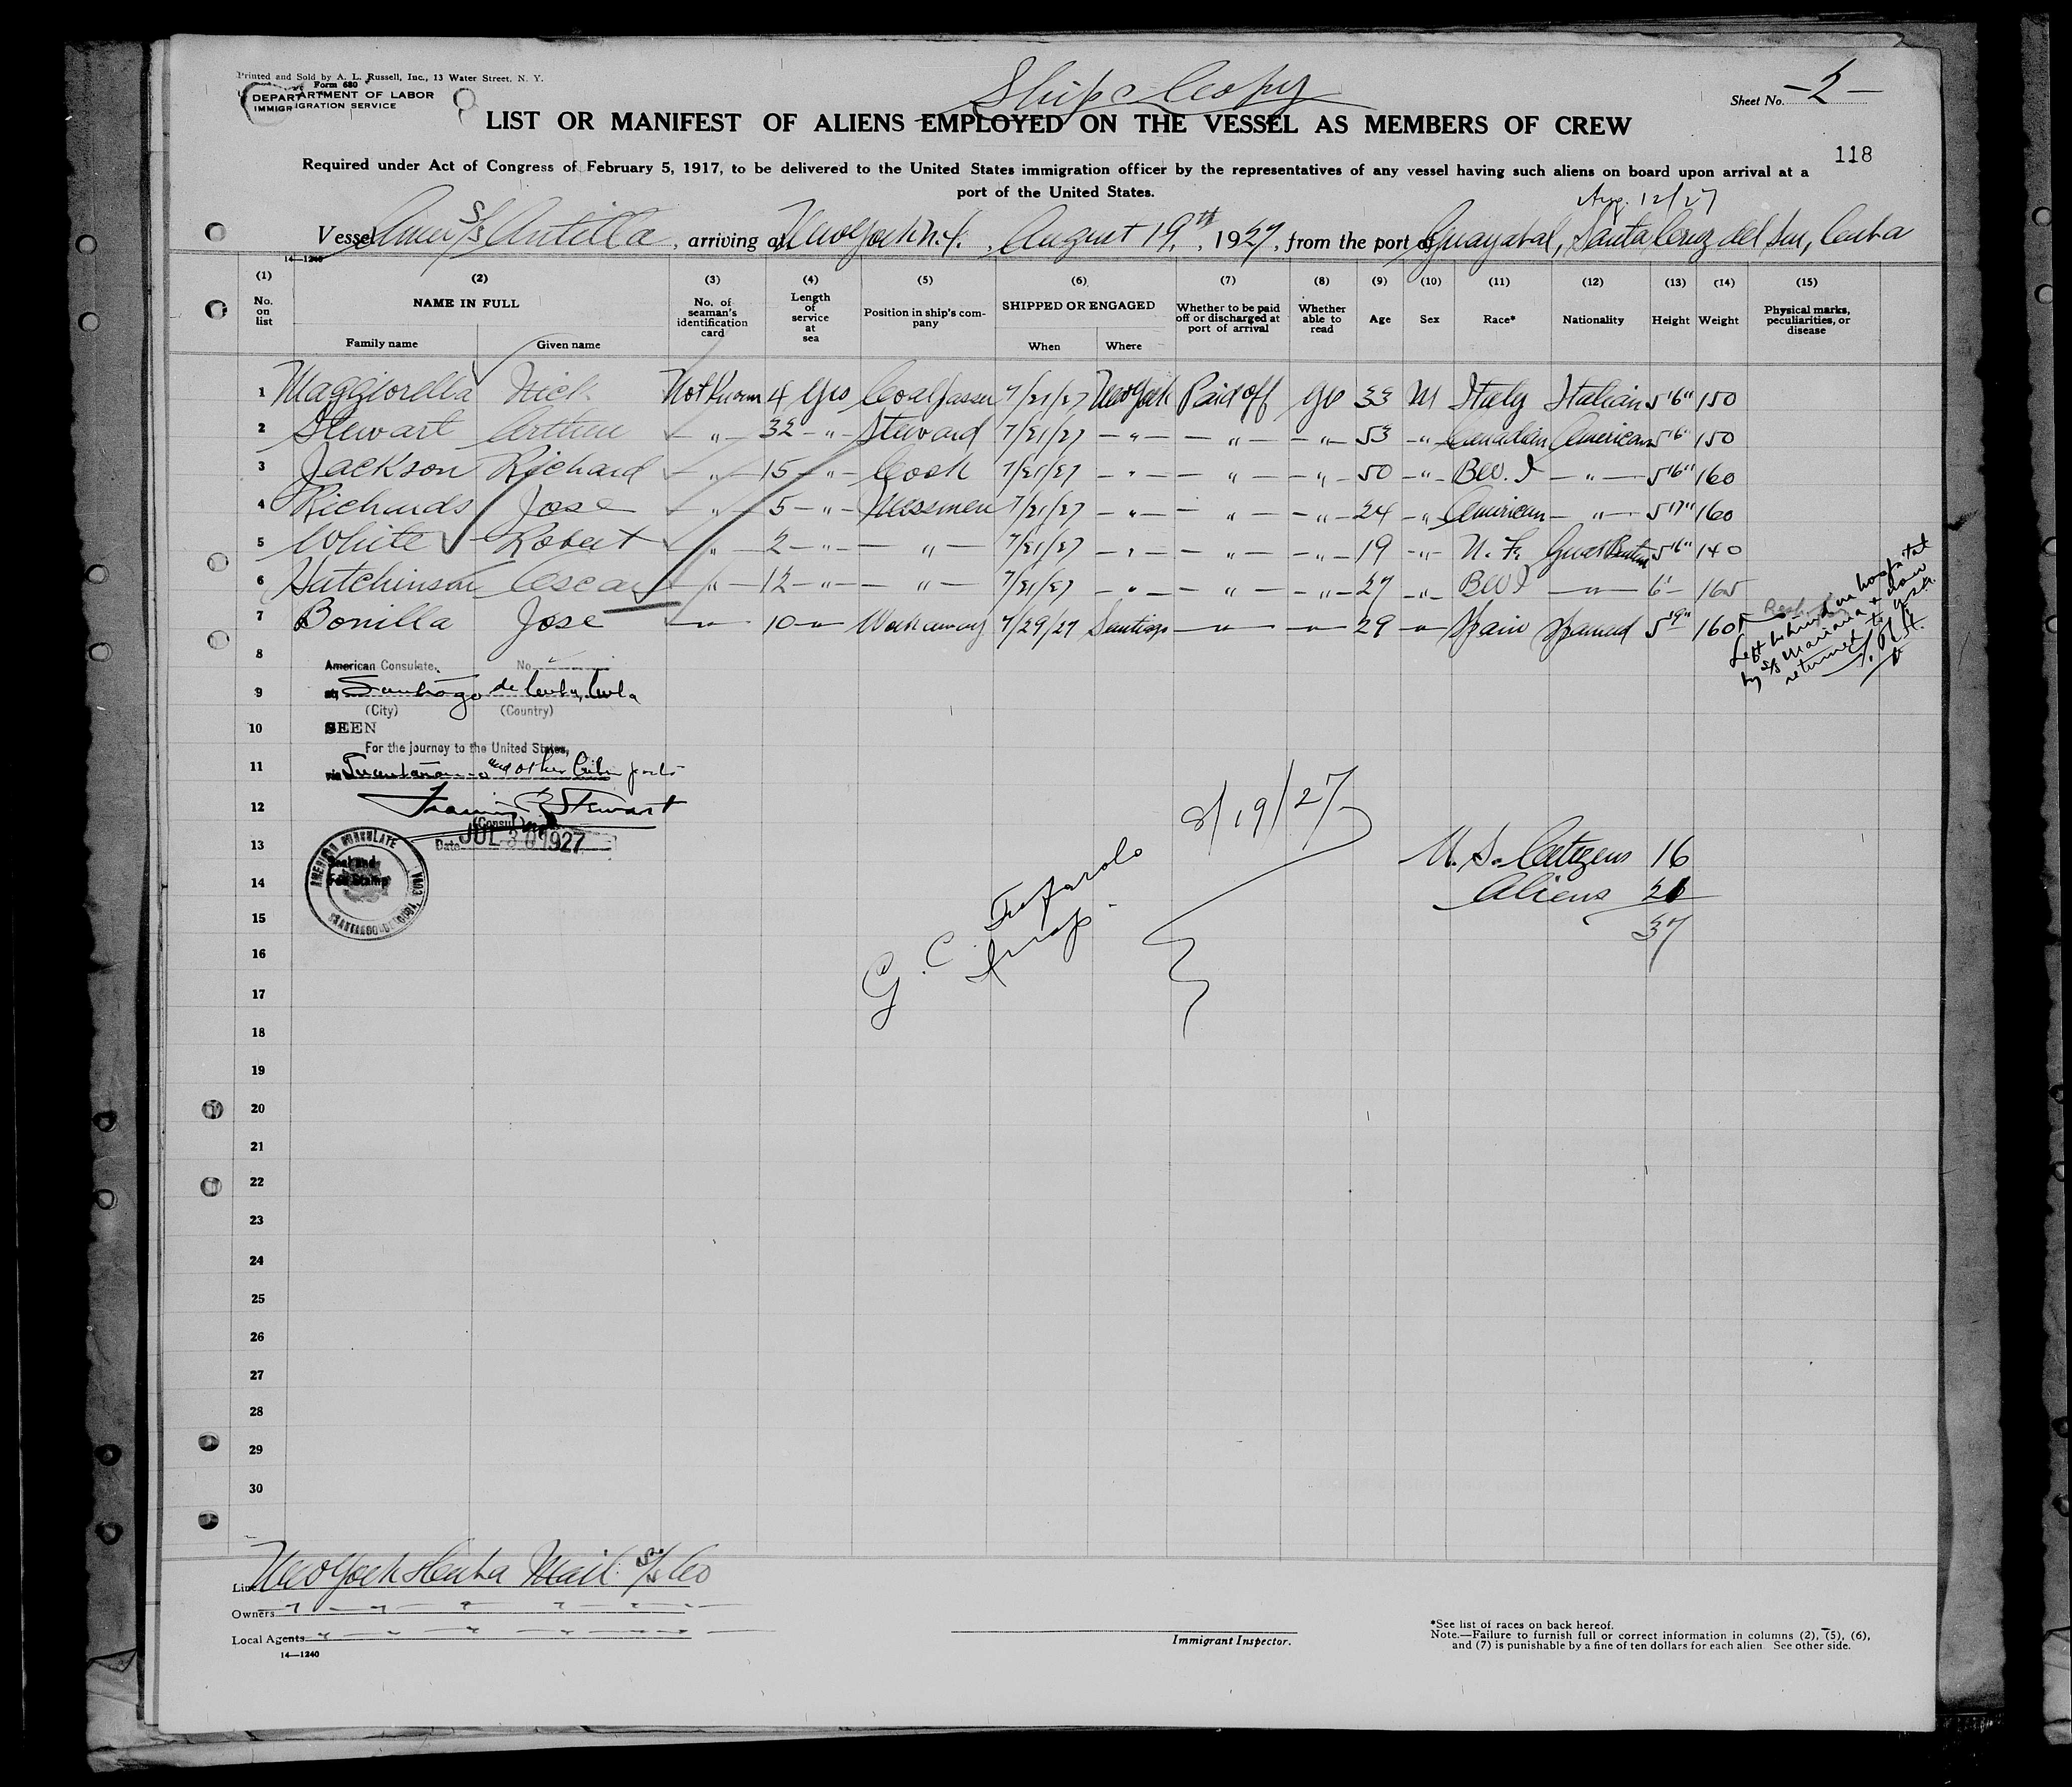 Printed and Sold by A. L. Russell, Inc., 13 Water Street, N. Y.
Form 680
DEPARTMENT OF LABOR
IMMIGRATION SERVICE
Ships Copy
Sheet No. -2-
LIST OR MANIFEST OF ALIENS EMPLOYED ON THE VESSEL AS MEMBERS OF CREW
118
Required under Act of Congress of February 5, 1917, to be delivered to the United States immigration officer by the representatives of any vessel having such aliens on board upon arrival at a
port of the United States.
Aug. 12/27
Vessel Amer S/S Antilla, arriving at New York N.Y., August 19th, 1927, from the port of Guayabal, Santa Cruz del Sur, Cuba
14—1240
(1) (2) (3) (4) (5) (6) (7) (8) (9) (10) (11) (12) (13) (14) (15)
No. on list NAME IN FULL Family name Given name No. of seaman's identification card Length of service at sea Position in ship's company SHIPPED OR ENGAGED When Where Whether to be paid off or discharged at port of arrival Whether able to read Age Sex Race* Nationality Height Weight Physical marks, peculiarities, or disease
1 Maggiorella Nick Not Known 4 yrs Coal Passer 7/21/27 New York Paid off yes 33 M Italy Italian 5'6" 150
2 Stewart Arthur — " — 32 — " — Steward 7/21/27 — " — — " — — " — 53 — " — Canadian American 5'6" 150
3 Jackson Richard — " — 15 — " — Cook 7/21/27 — " — — " — — " — 50 — " — B.W.I — " — 5'6" 160
4 Richards Jose — " — 5 — " — Messmen 7/21/27 — " — — " — — " — 24 — " — American — " — 5'7" 160
5 White Robert — " — 2 — " — — " — 7/21/27 — " — — " — — " — 19 — " — N. F. Great Britain 5'6" 140
6 Hutchinson Oscar — " — 12 — " — — " — 7/21/27 — " — — " — — " — 27 — " — BWI — " — 6' 165
7 Bonilla Jose — " — 10 — " — Workaway 7/29/27 Santiago — " — — " — 29 — " — Spain Spaniard 5'9" 160
Left behind in hospital
by S/S Mariana & now
returned to
8
American Consulate, No.
9
at Santiago de Cuba, Cuba
(City) (Country)
10
SEEN
For the journey to the United States,
11
via Guantanamo and other Cuban ports
12
Stewart
(Consul)
Date JUL 30 1927
13
AMERICAN CONSULATE
SANTIAGO DE CUBA, CUBA
Seal and
Fee Stamp
8/19/27
U. S. Citizens 16
14
Aliens 21
15
37
G. C.
Insp.
16
17
18
19
20
21
22
23
24
25
26
27
28
29
30
Line New York & Cuba Mail S/S Co
Owners " " " " " "
Local Agents " " " " " "
14—1240
Immigrant Inspector.
*See list of races on back hereof.
Note.—Failure to furnish full or correct information in columns (2), (5), (6),
and (7) is punishable by a fine of ten dollars for each alien. See other side.